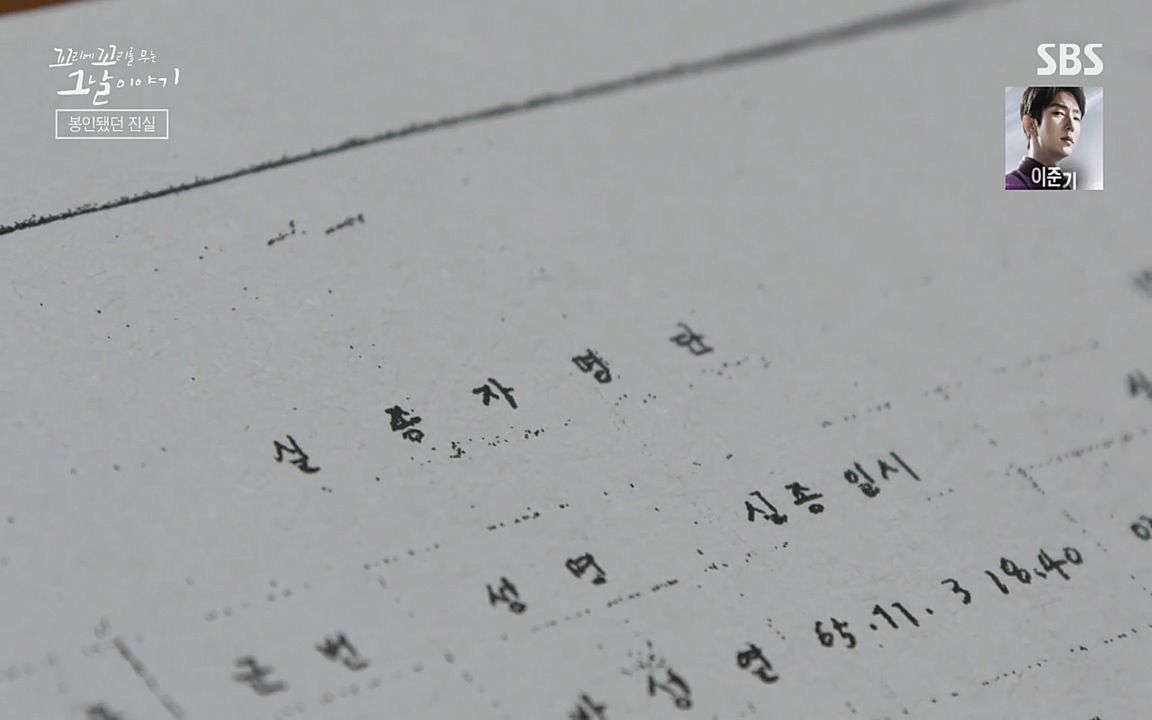 꼬리에 꼬리를 무는
그날 이야기
봉인됐던 진실
SBS
이준기
실종자명단
군번 성명 실종일시
성연 65.11.3 18.40